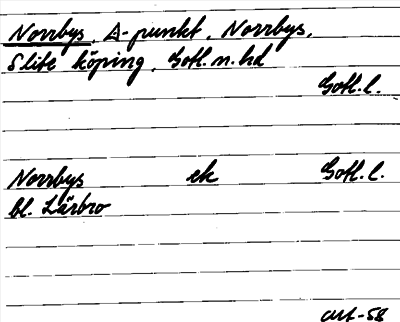 Norrbys, A-punkt, Norrbys,
Slite köping, Gotl. n. hd
Gotl. l.
Norrbys ek Gotl. l.
bl. Lärbro
-58